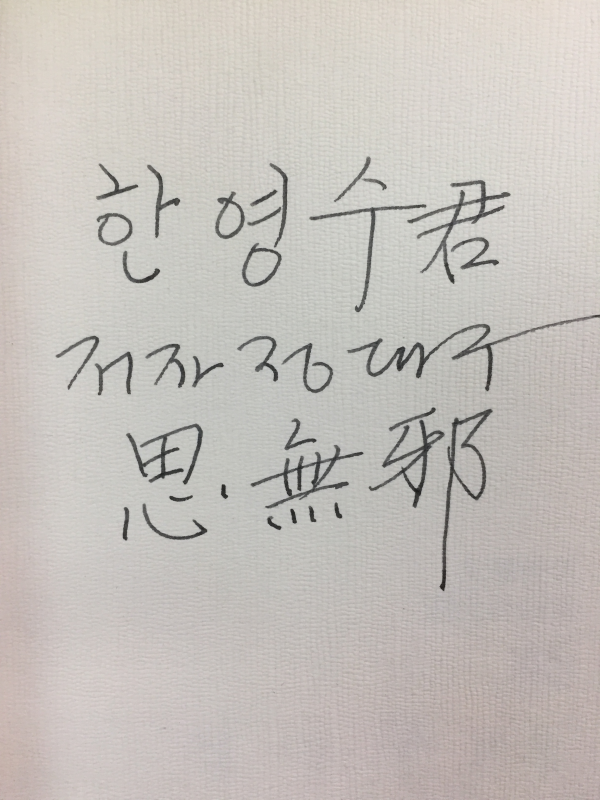 한영수君
저자 정대구
思無邪